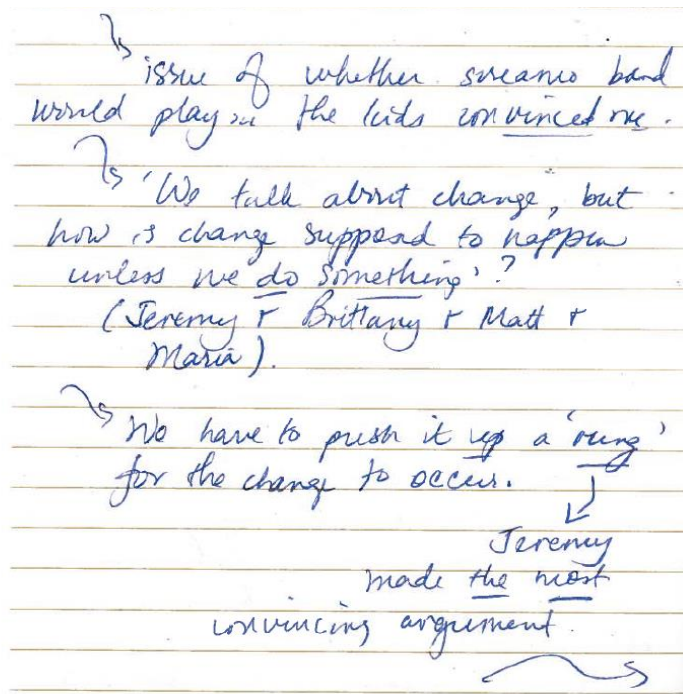 issue of whether screamo band
would play .. the kids convinced me.
'We talk about change, but
how is change supposed to happen
unless we do something'?
(Jeremy + Brittany + Matt +
Maria).
We have to push it up a 'rung'
for the change to occur.
Jeremy
made the most
convincing argument.